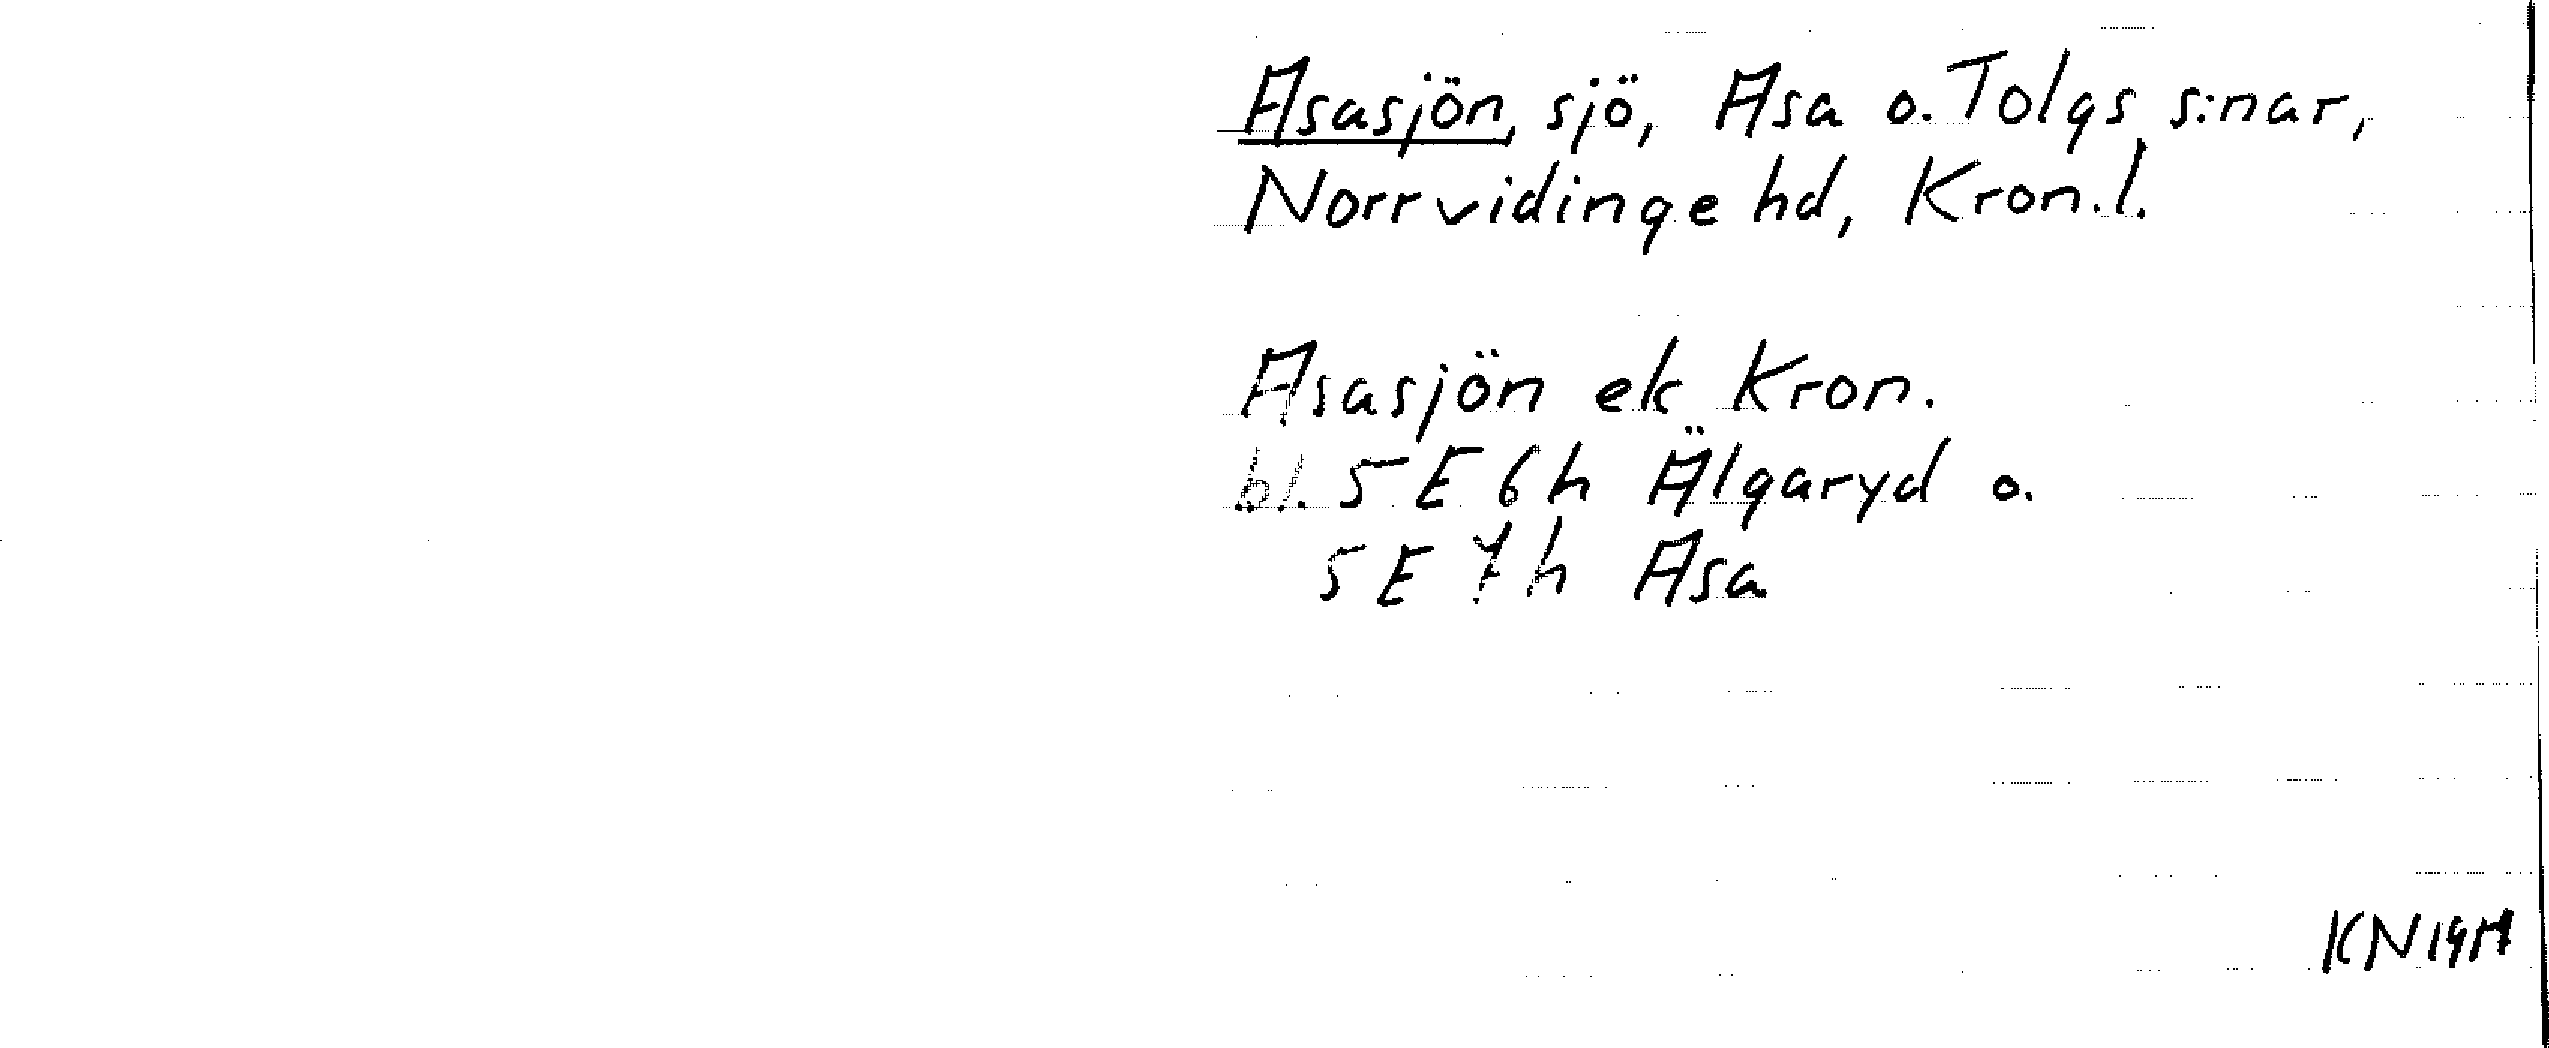 Asasjön, sjö, Asa o. Tolgs s:nar,
Norrvidinge hd, Kron.l.
Asasjön ek Kron.
bl. 5E 6h Älgaryd o.
5E 7h Asa